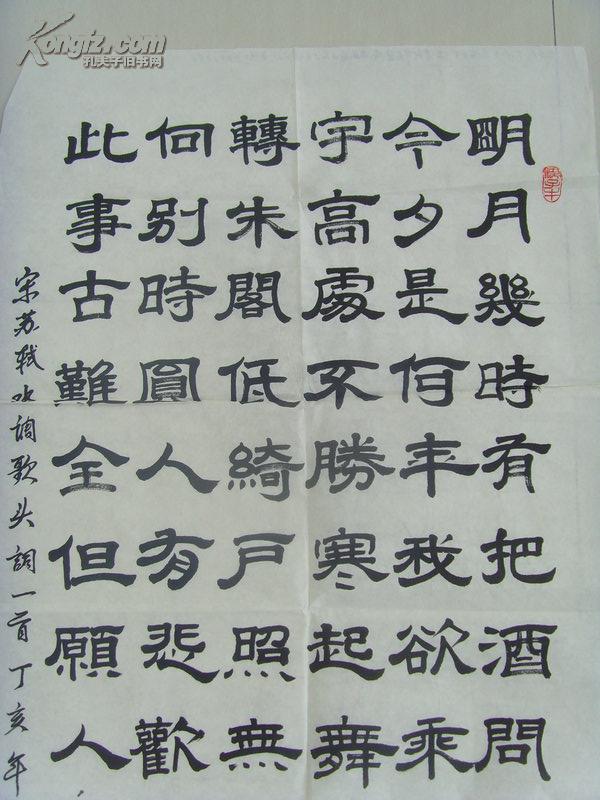 明月幾時有把酒問
今夕是何年我欲乘
宇高處不勝寒起舞
轉朱閣低綺戶照無
向別時圓人有悲歡
此事古難全但願人
宋苏轼水调歌头詞一首丁亥年
Kongfz.com
孔夫子旧书网